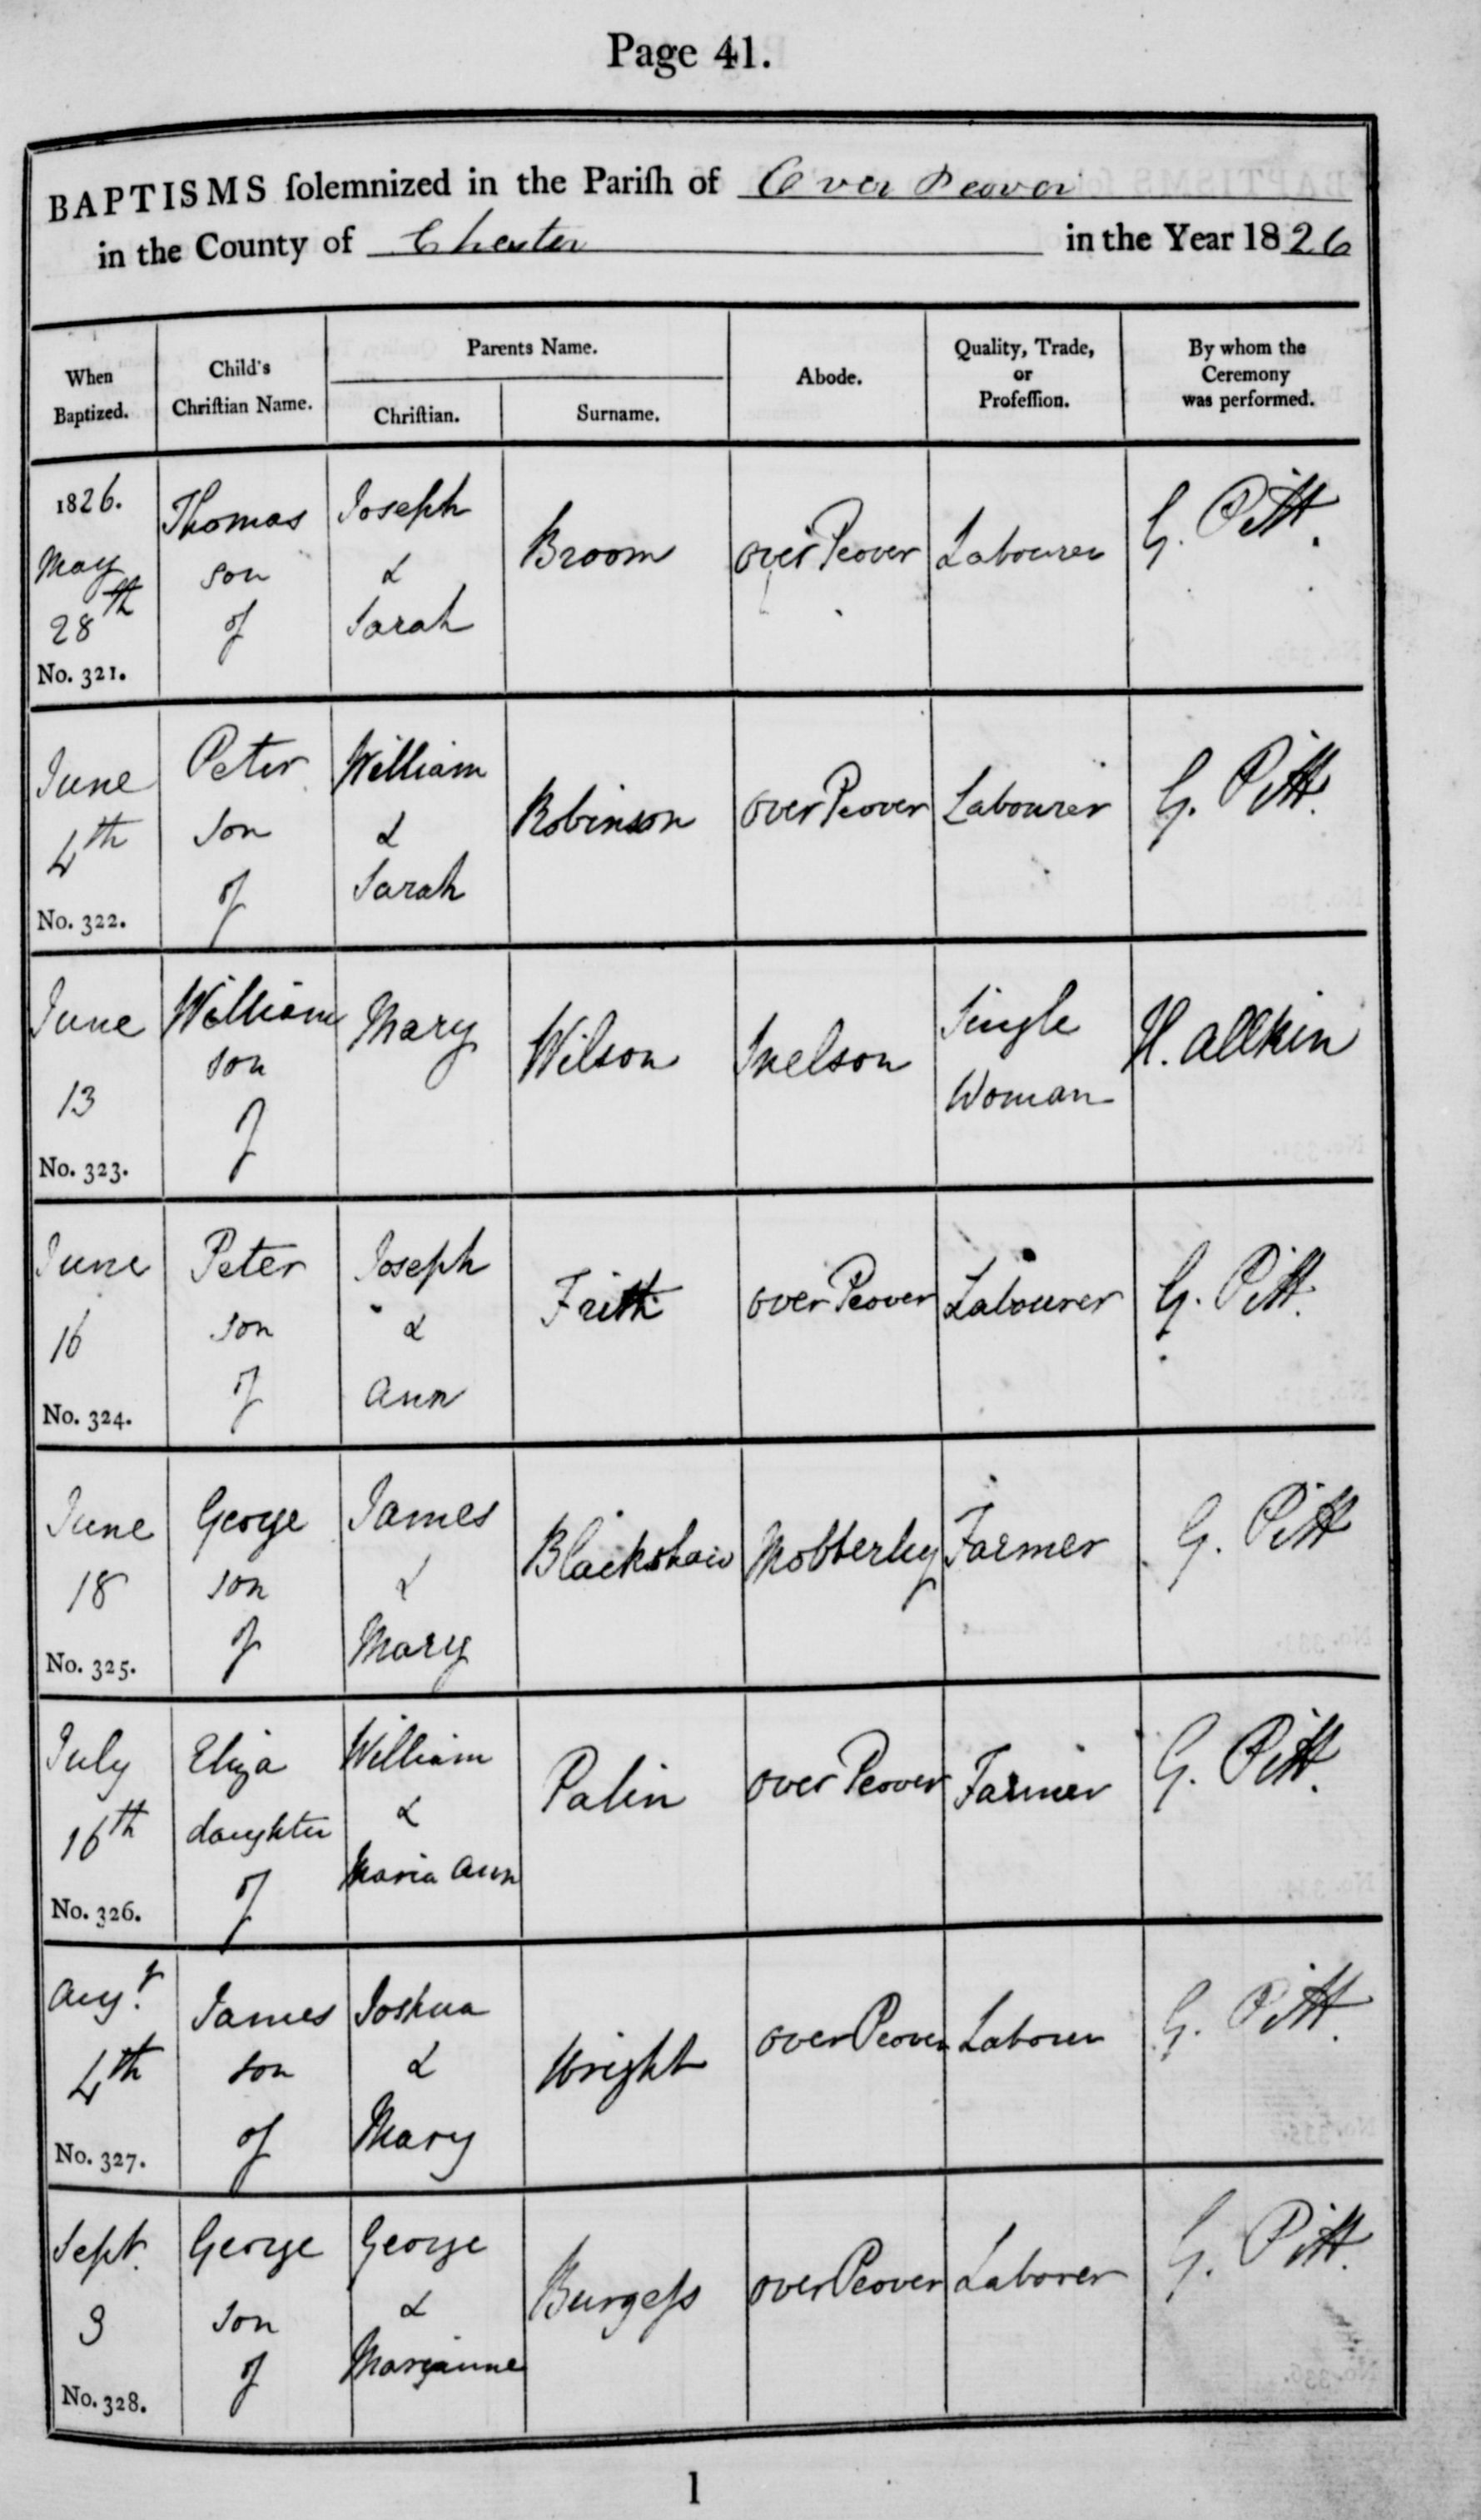 Page 41.
BAPTISMS ſolemnized in the Pariſh of Over Peover
in the County of Chester in the Year 1826
When Baptized.
Child's Chriſtian Name.
Parents Name.
Chriſtian.
Surname.
Abode.
Quality, Trade, or Profeſſion.
By whom the Ceremony was performed.
1826.
May
28th
No. 321.
Thomas
son
of
Joseph
&
Sarah
Broom
over Peover
Labourer
G. Pitt.
June
4th
No. 322.
Peter
son
of
William
&
Sarah
Robinson
over Peover
Labourer
G. Pitt.
June
13
No. 323.
William
son
of
Mary
Wilson
Snelson
Single
Woman
H. Allkin
June
16
No. 324.
Peter
son
of
Joseph
&
Ann
Frith
over Peover
Labourer
G. Pitt.
June
18
No. 325.
George
son
of
James
&
Mary
Blackshaw
Mobberley
Farmer
G. Pitt
July
16th
No. 326.
Eliza
daughter
of
William
&
Maria Ann
Palin
over Peover
Farmer
G. Pitt.
Augt.
4th
No. 327.
James
son
of
Joshua
&
Mary
Wright
over Peover
Labourer
G. Pitt.
Sept.
3
No. 328.
George
son
of
George
&
Maryanne
Burgeſs
over Peover
Laborer
G. Pitt.
l